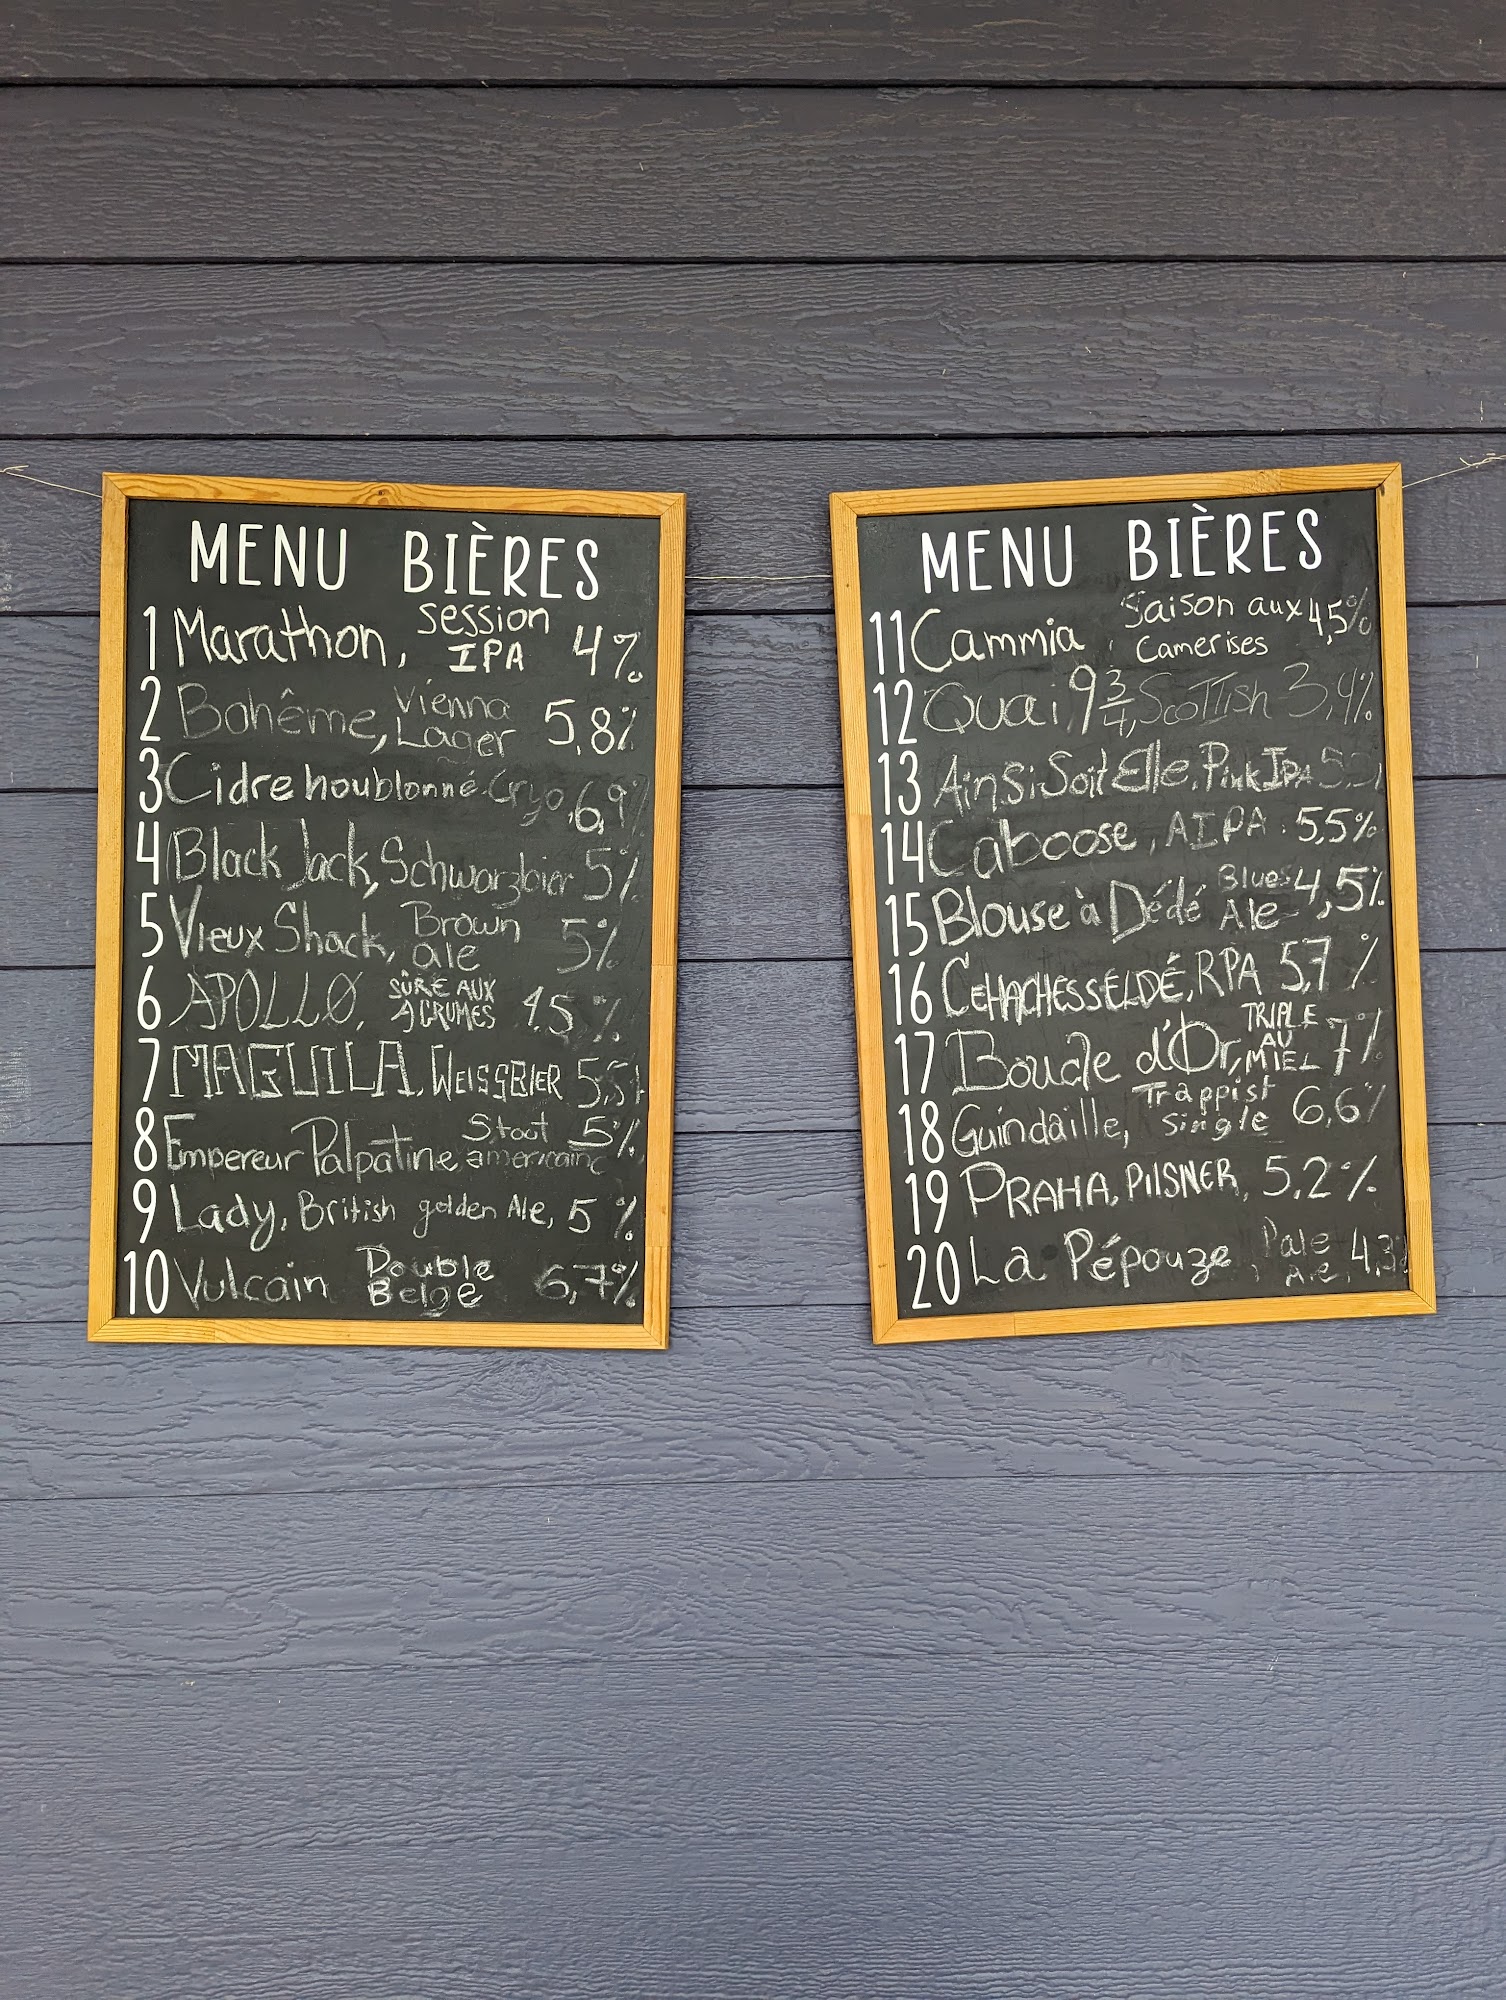 MENU BIÈRES
1 Marathon, Session IPA 4%
2 Bohême, Vienna Lager 5,8%
3 Cidre houblonné Cryo, 6,9%
4 Black Jack, Schwarzbier 5%
5 Vieux Shack, Brown ale 5%
6 APOLLØ, SÛRE AUX AGRUMES 4,5%
7 MAGUILA, WEISSBIER 5,5%
8 Empereur Palpatine Stout americaine 5%
9 Lady, British golden Ale, 5%
10 Vulcain Double Belge 6,7%
MENU BIÈRES
11 Cammia, Saison aux Camerises 4,5%
12 Quai 9 3/4, Scottish 3,4%
13 Ainsi Soit Elle, Pink IPA
14 Caboose, AIPA, 5,5%
15 Blouse à Dédé Blues Ale 4,5%
16 CEHACHESSELDÉ, RPA 5,7%
17 Boucle d'Or, TRIPLE AU MIEL 7%
18 Guindaille, Trappist Single 6,6%
19 PRAHA, PILSNER, 5,2%
20 La Pépouze, Pale Ale, 4,3%